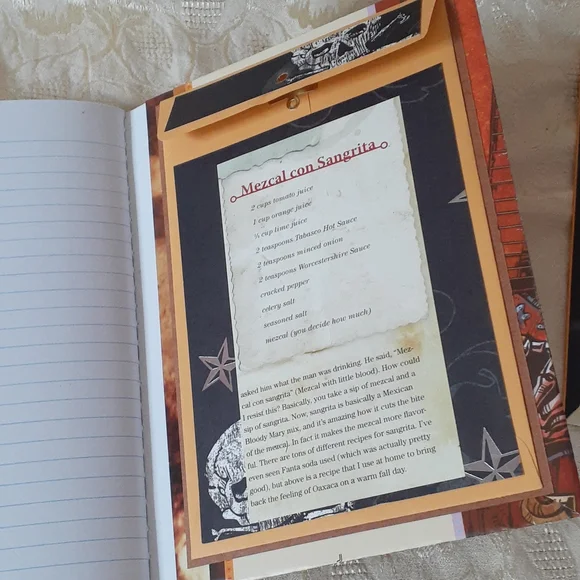 Mezcal con Sangrita
2 cups tomato juice
1 cup orange juice
cup lime juice
2 teaspoons Tabasco Hot Sauce
2 teaspoons minced onion
2 teaspoons Worcestershire Sauce
cracked pepper
celery salt
seasoned salt
mezcal (you decide how much)
asked him what the man was drinking. He said, "Mez-
cal con sangrita" (Mezcal with little blood). How could
I resist this? Basically, you take a sip of mezcal and a
sip of sangrita. Now, sangrita is basically a Mexican
Bloody Mary mix, and it's amazing how it cuts the bite
of the mezcal. In fact it makes the mezcal more flavor-
ful. There are tons of different recipes for sangrita. I've
even seen Fanta soda used (which was actually pretty
good), but above is a recipe that I use at home to bring
back the feeling of Oaxaca on a warm fall day.